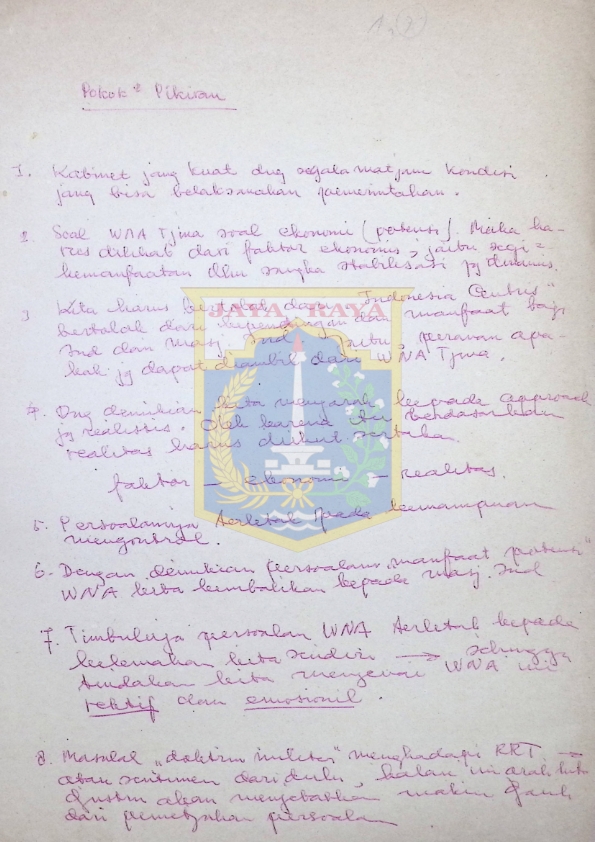 Pokok² Pikiran
1. Kabinet jang kuat dng segala matjam kondisi
jang bisa melaksanakan pemerintahan.
2. Soal WNA Tjina soal ekonomi (potensi). Maka ha-
rus dilihat dari faktor ekonomis, jaitu segi²
kemanfaatan dlm rangka stabilisasi jg dinamis.
3 Kita harus bertolak dari "Indonesia Centris"
bertolak dari kepentingan dan manfaat bagi
Ind dan masj. Ind jaitu, peranan apa-
kah jg dapat diambil dari WNA Tjina.
JAYA RAYA
4. Dng demikian kita mengarah kepada approach
jg realistis. Oleh karena itu berdasarkan
realitas harus diikut sertakan
faktor – ekonomi – realitas.
5. Persoalannja terletak pada kemampuan
mengontrol.
6. Dengan demikian persoalan "manfaat potensi"
WNA kita kembalikan kepada masj. Ind
7. Timbulnja persoalan WNA terletak kepada
kelemahan kita sendiri → sehingga
tindakan kita mengenai WNA ini
rektif dan emosionil.
8. Masalah "doktrin militer" menghadapi RRT →
akan sentimen dari dulu, kalau ini arah kita
djustru akan menjebabkan makin djauh
dari pemetjahan persoalan